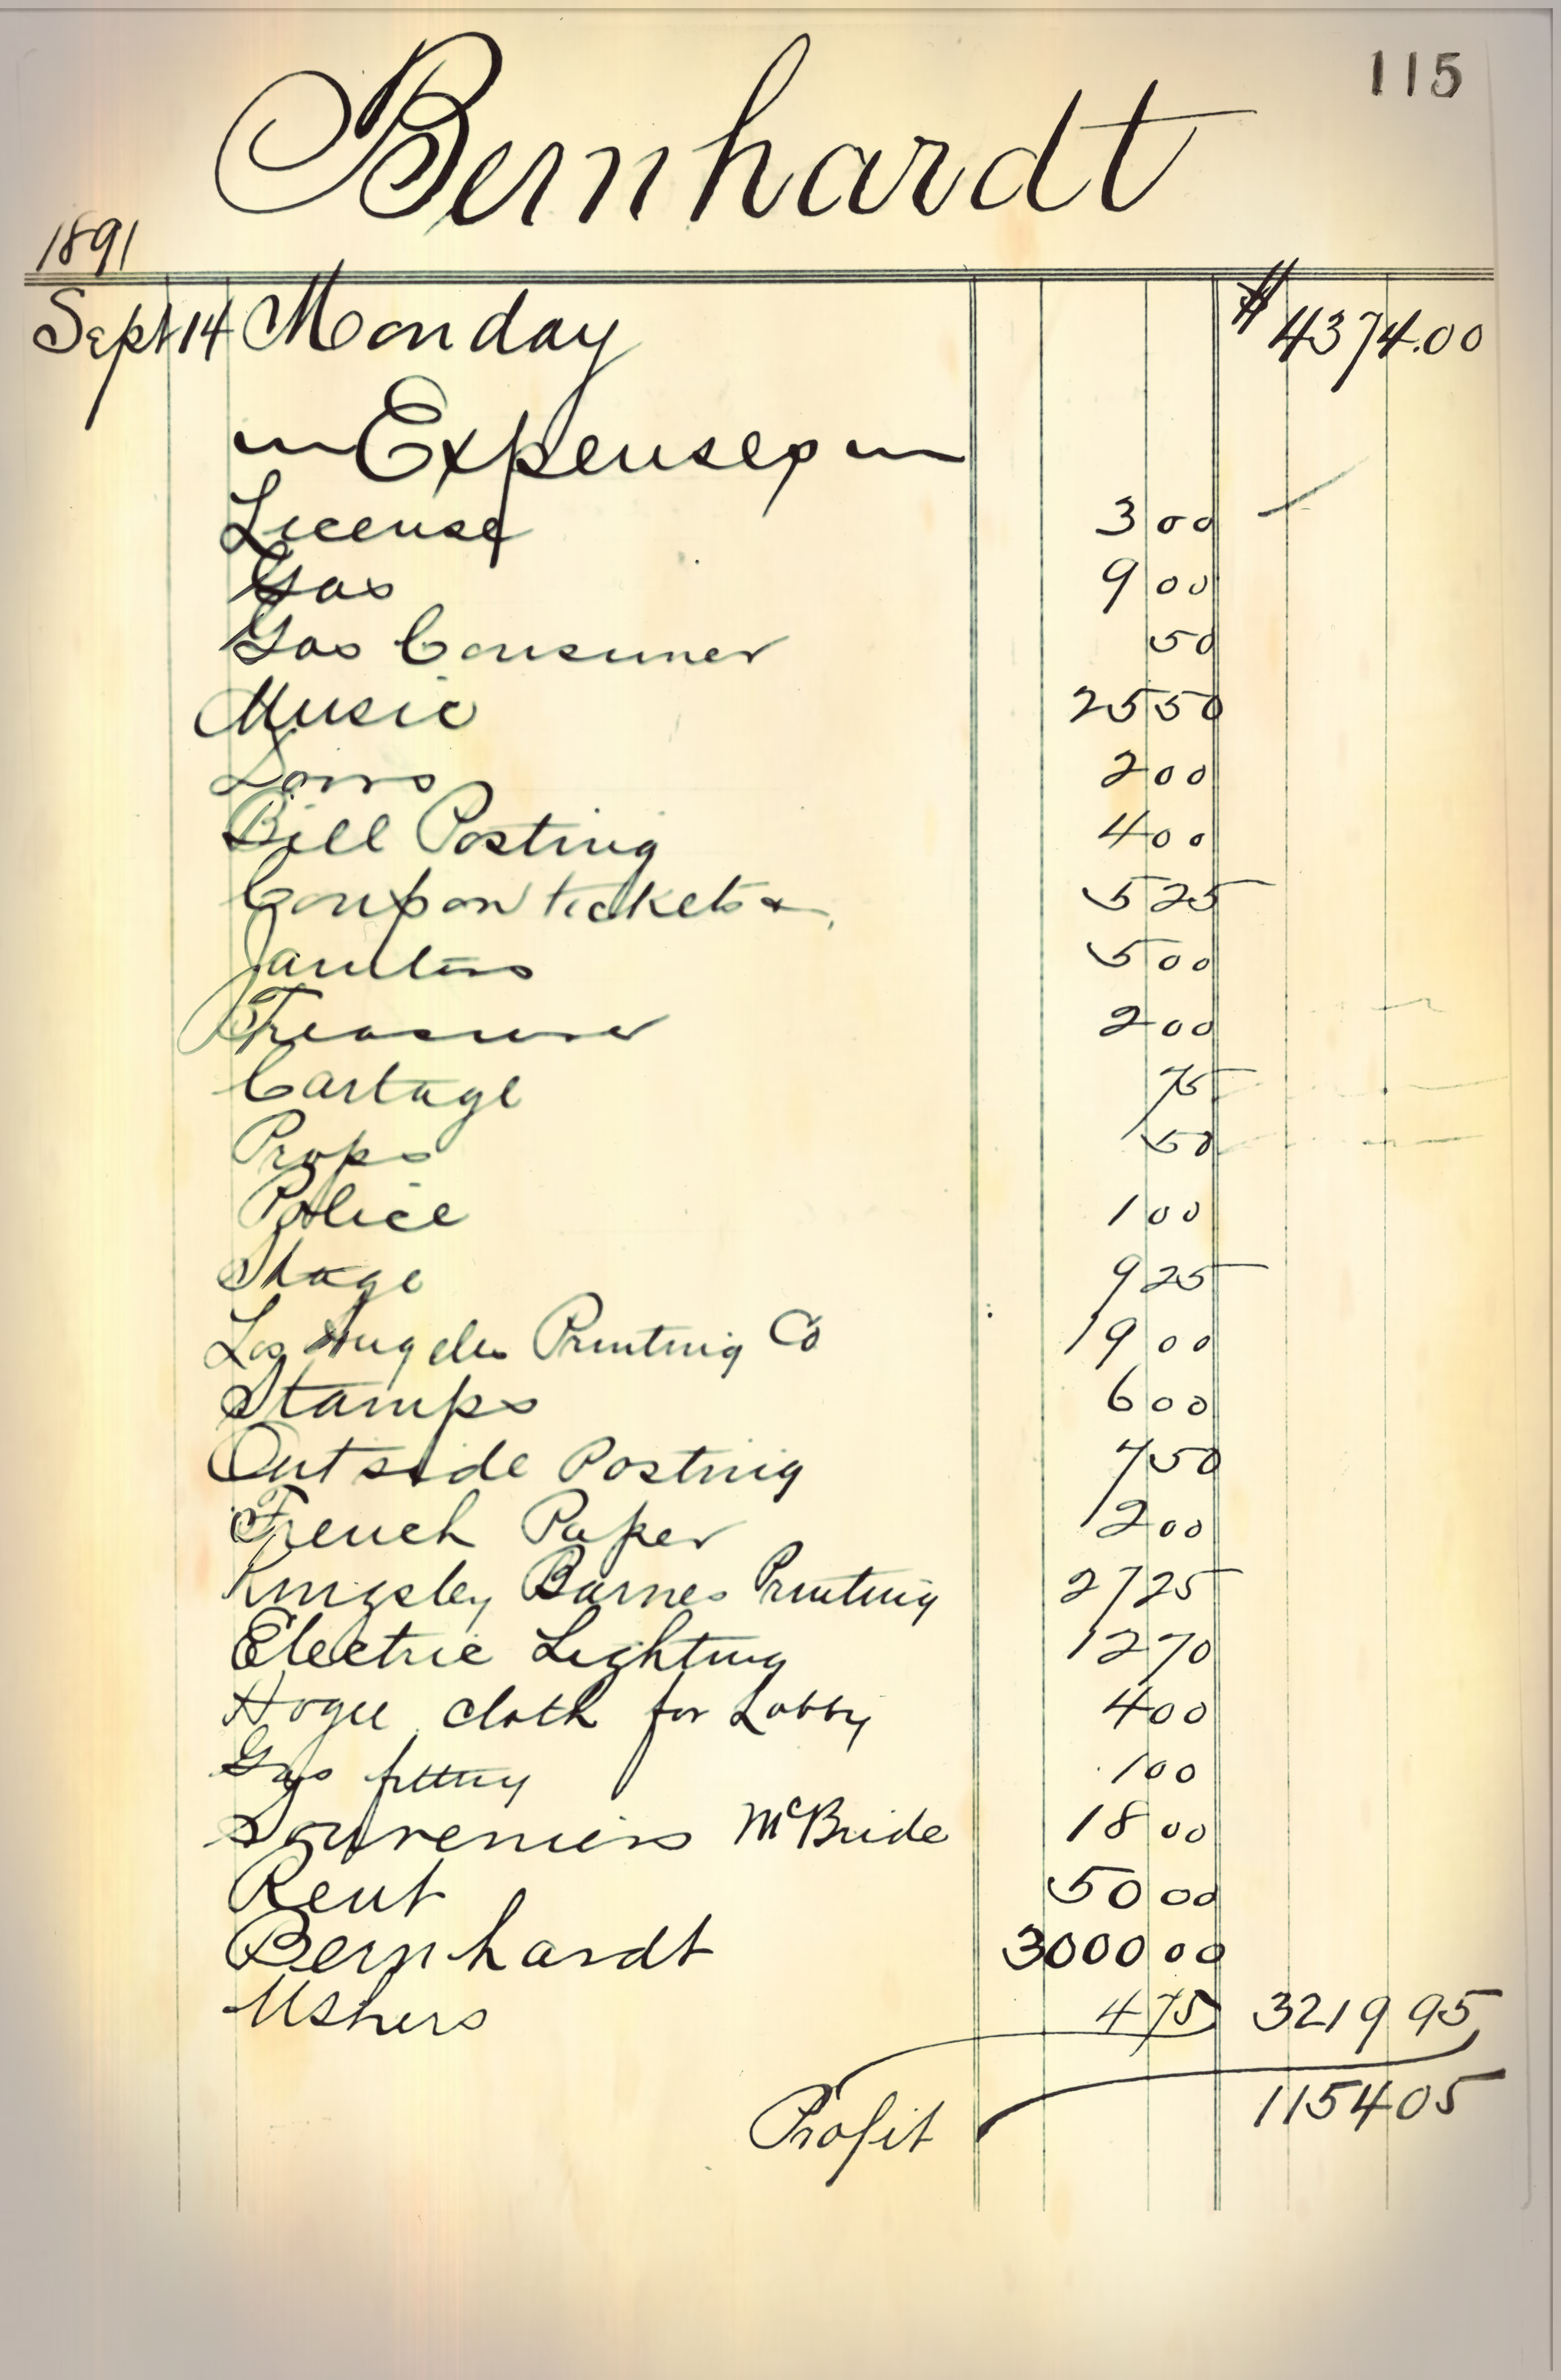 115
Bernhardt
1891
Sept 14 Monday $4374.00
Expenses
License 3 00
Gas 9 00
Gas Consumer 50
Music 25 50
2 00
Bill Posting 4 00
Coupon tickets 5 25
Janitors 5 00
Treasurer 2 00
Cartage 75
Props 50
Police 1 00
Stage 9 25
Los Angeles Printing Co 19 00
Stamps 6 00
Outside Posting 7 50
French Paper 2 00
Kingsley Barnes Printing 27 25
Electric Lighting 12 70
Hogue cloth for Lobby 4 00
Gas fitting 1 00
Souveniers McBride 18 00
Rent 50 00
Bernhardt 3000 00
Ushers 4 75 3219 95
Profit 1154 05